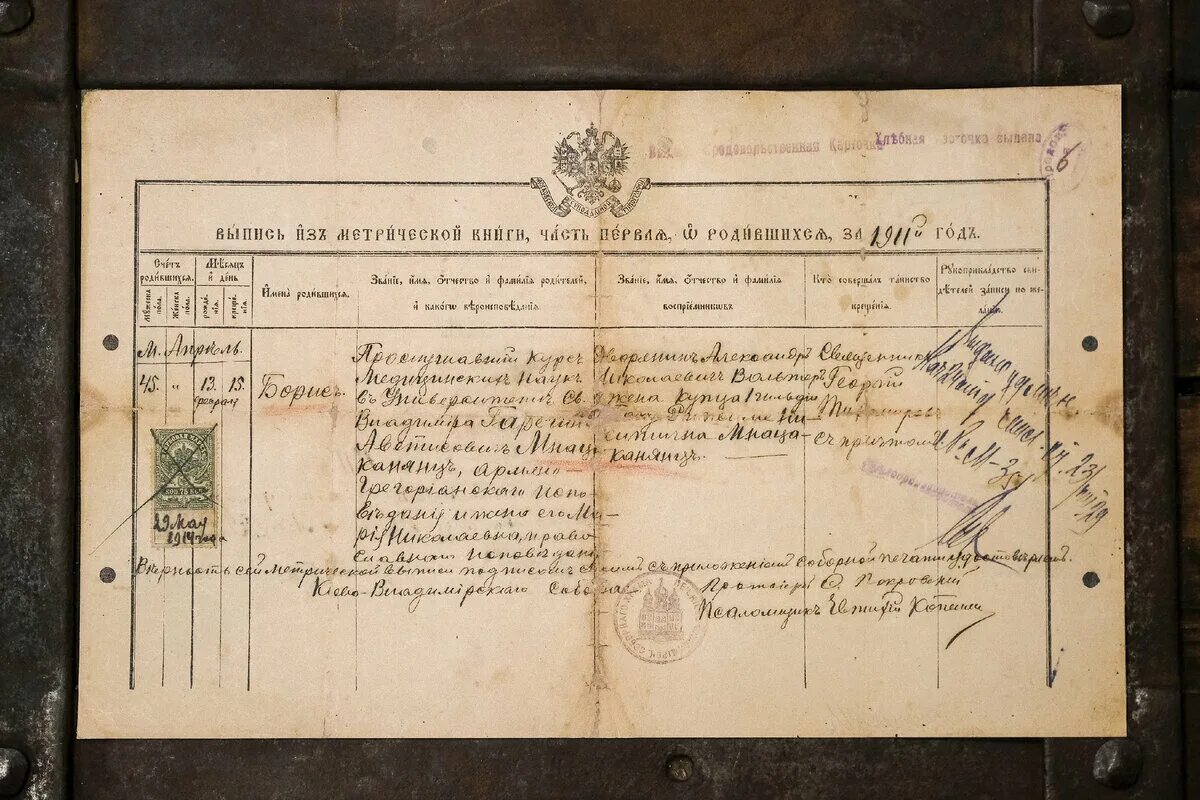 Продовольственная Карточка
Хлѣбная
ВЫПИСЬ ИЗЪ МЕТРИЧЕСКОЙ КНИГИ, ЧАСТЬ ПЕРВАЯ, Ѿ РОДИВШИХСЯ, ЗА 1911й ГОДЪ.
Счетъ родившихся.
Мужеска пола.
Женска пола.
Мѣсяцъ и день
рожденія.
крещенія.
Имена родившихся.
Званіе, имя, отчество и фамилія родителей,
и какогѡ вѣроисповѣданія.
Званіе, имя, отчество и фамилія
воспріемниковъ
Кто совершалъ таинство
крещенія.
Рукоприкладство сви-
дѣтелей записи по же-
ланію.
М. Апрѣль.
45. " 13. 15.
февраля
Борисъ.
Прослушавшій курсъ
Медицинскихъ Наукъ
въ Университетѣ Св.
Владиміра Гарегинъ
Аветисовичъ Мнаца-
канянцъ, армяно-
Грегоріанскаго испо-
вѣданія и жена его Ма-
рія Николаевна, право-
славнаго исповѣданія
Дворянинъ Александръ
Николаевич Вальтеръ
жена купца 1 гильдіи
Мнаца-
канянцъ.
Священникъ
Георгій
съ причтомъ
КОП. 75 КОП.
29 Мая
1914 года
Вѣрность сей метрической выписи подписомъ съ приложеніемъ Соборной печати удостовѣряемъ.
Кіево-Владимірскаго Собора Протоіерей Покровскій
Псаломщикъ